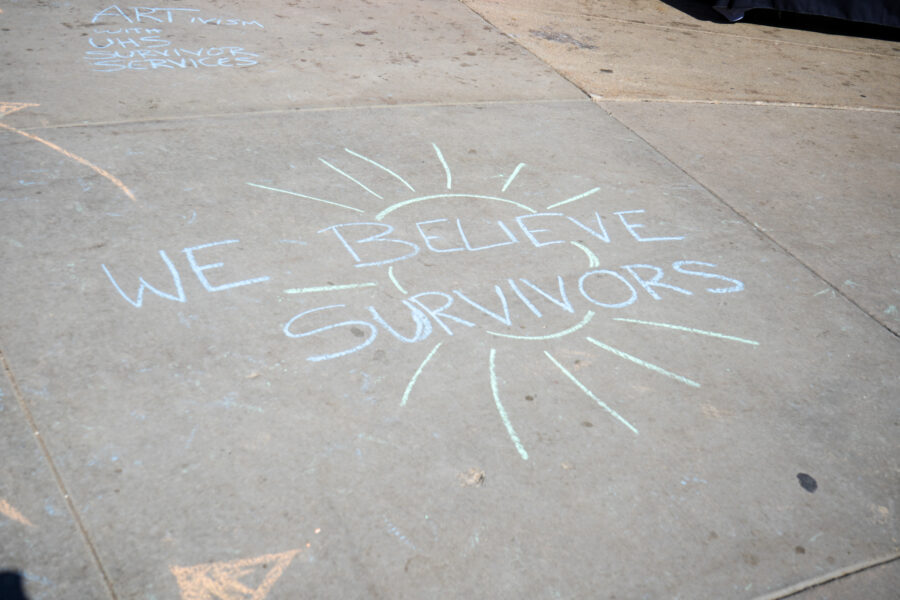 ARTIVISM
WITH
UHS
SURVIVOR
SERVICES
WE BELIEVE
SURVIVORS